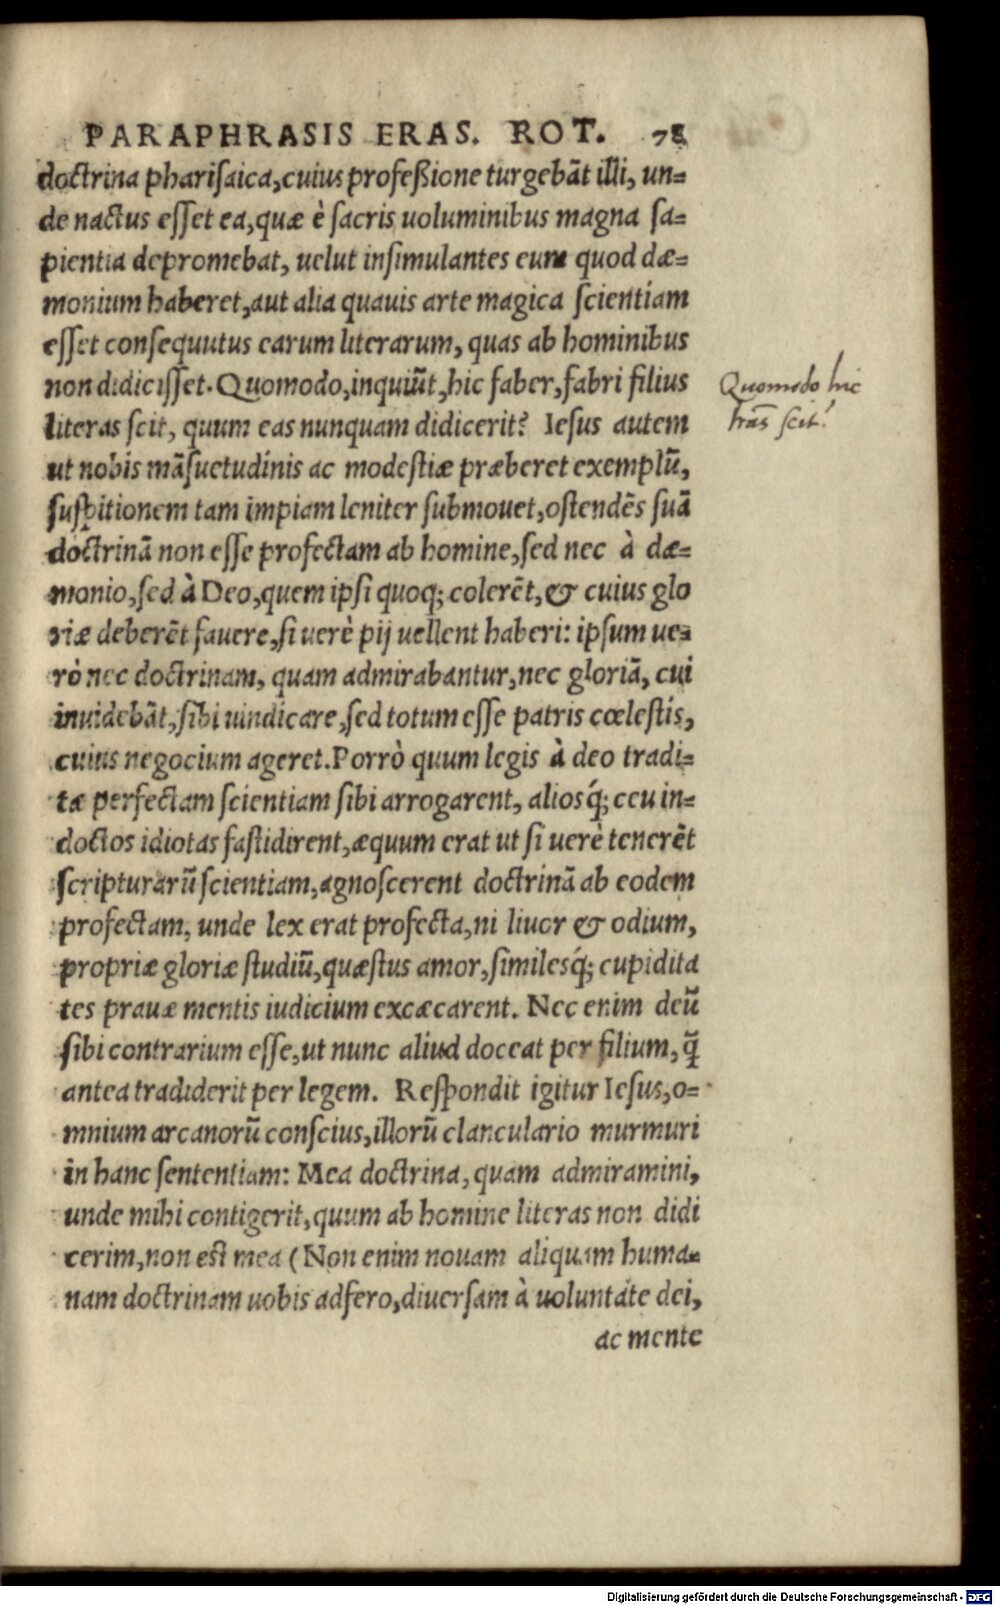 PARAPHRASIS ERAS. ROT. 78
doctrina pharisaica, cuius profeßione turgebāt illi, un-
de nactus esset ea, quæ è sacris uoluminibus magna sa-
pientia depromebat, uelut insimulantes eum quod dæ-
monium haberet, aut alia quauis arte magica scientiam
esset consequutus earum literarum, quas ab hominibus
non didicisset. Quomodo, inquiūt, hic faber, fabri filius
literas scit, quum eas nunquam didicerit? Iesus autem
ut nobis māsuetudinis ac modestiæ præberet exemplū,
suspitionem tam impiam leniter submouet, ostendēs suā
doctrinā non esse profectam ab homine, sed nec à dæ-
monio, sed à Deo, quem ipsi quoq; colerēt, & cuius glo
riæ deberēt fauere, si uerè pij uellent haberi: ipsum ue-
rò nec doctrinam, quam admirabantur, nec gloriā, cui
inuidebāt, sibi uindicare, sed totum esse patris cœlestis,
cuius negocium ageret. Porrò quum legis à deo tradi-
tæ perfectam scientiam sibi arrogarent, aliosq́; ceu in-
doctos idiotas fastidirent, æquum erat ut si uerè tenerēt
scripturarū scientiam, agnoscerent doctrinā ab eodem
profectam, unde lex erat profecta, ni liuor & odium,
propriæ gloriæ studiū, quæstus amor, similesq́; cupidita
tes prauæ mentis iudicium excæcarent. Nec enim deū
sibi contrarium esse, ut nunc aliud doceat per filium, q̄
antea tradiderit per legem. Respondit igitur Iesus, o-
mnium arcanorū conscius, illorū clanculario murmuri
in hanc sententiam: Mea doctrina, quam admiramini,
unde mihi contigerit, quum ab homine literas non didi
cerim, non est mea (Non enim nouam aliquam huma-
nam doctrinam uobis adfero, diuersam à uoluntate dei,
ac mente
Quomodo hic
lr̄as scit?
Digitalisierung gefördert durch die Deutsche Forschungsgemeinschaft - DFG